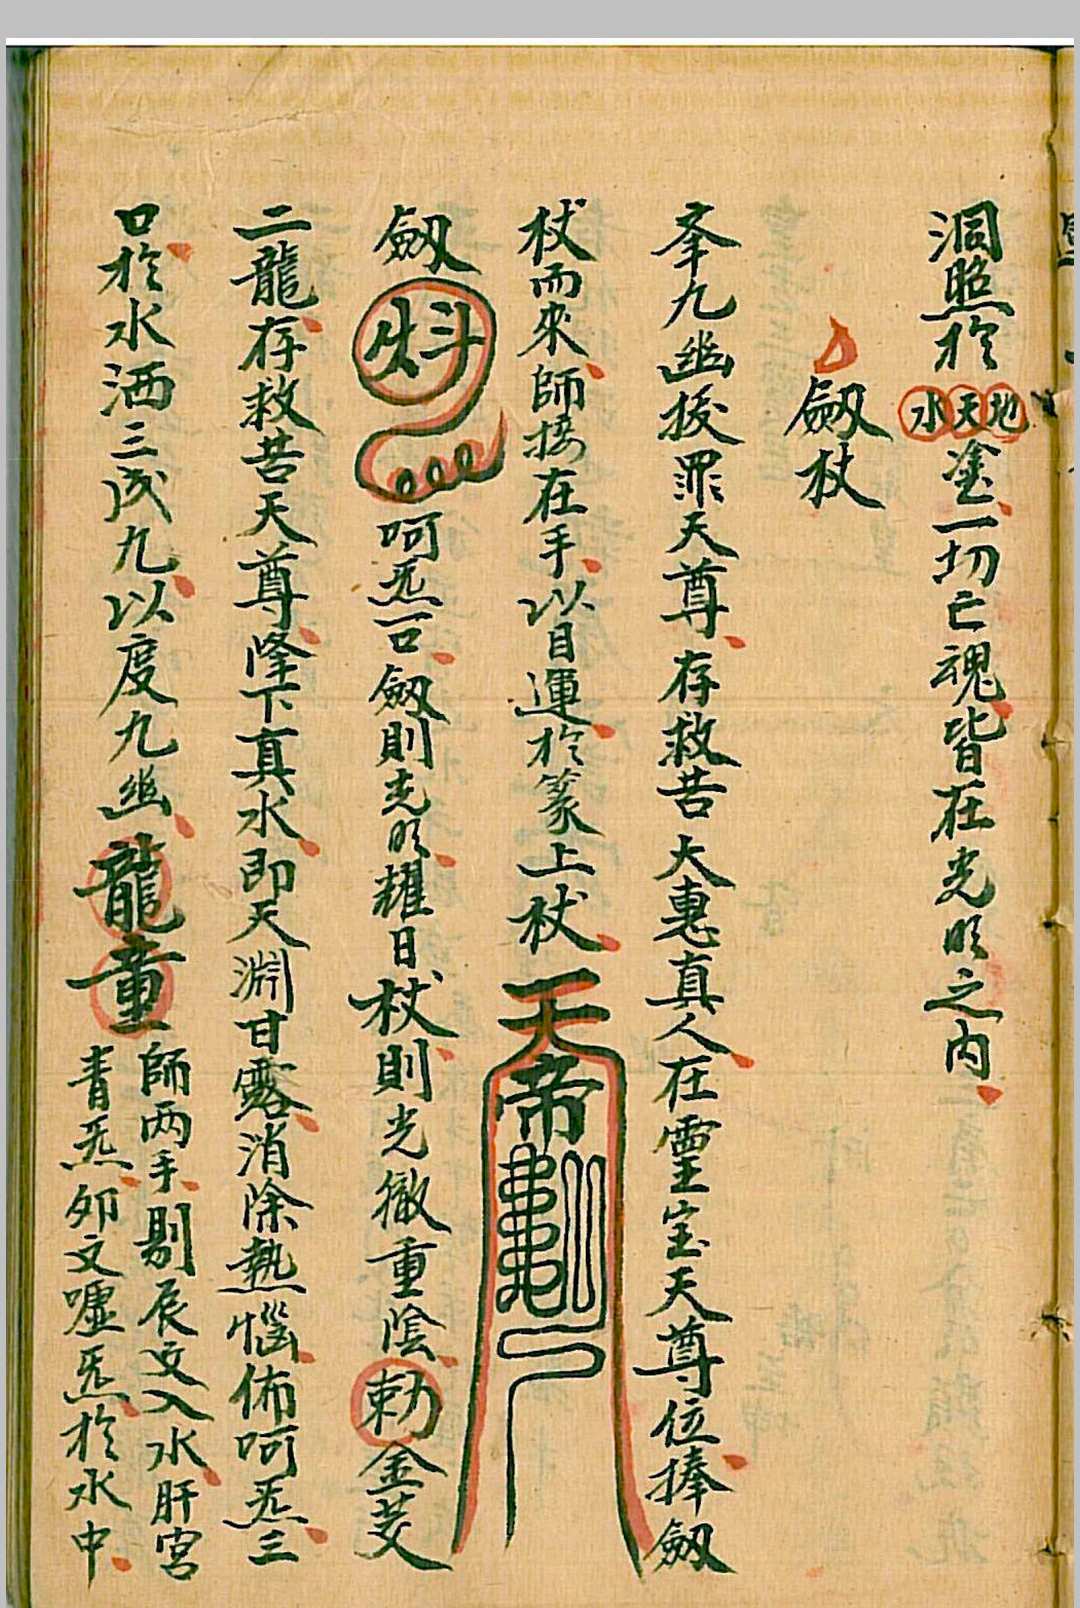 洞照於地天水塗一切亡魂皆在光明之内
劔杖
奉九幽拔罪天尊存救苦大惠真人在靈宝天尊位捧劔
杖而來師接在手以目運於篆上杖天帝
劔炓呵炁一口劔則光明耀日杖則光徹重陰勅金芟
二龍存救苦天尊降下真水即天淵甘露消除熱惱佈呵炁三
口於水洒三成九以度九幽龍童
師两手剔辰文入水肝宮
青炁夘文噓炁於水中